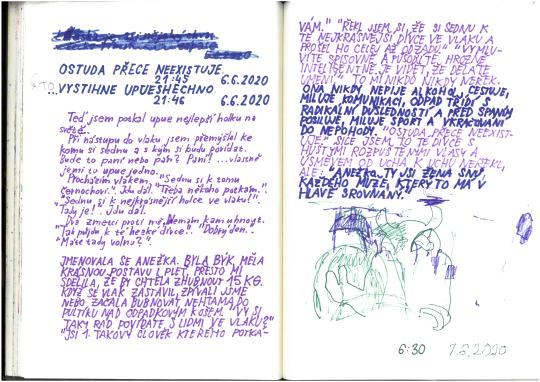 OSTUDA PŘECE NEEXISTUJE.
21:45 6.6.2020
TO VYSTIHNE ÚPLNĚ VŠECHNO.
21:46 6.6.2020
Teď jsem potkal úplně nejlepší holku na
světě.
Při nástupu do vlaku jsem přemýšlel ke
komu si sednu a s kým si budu povídat.
Bude to paní nebo pán? Paní! ...vlastně
je mi to úplně jedno.
Procházím vlakem. "Sednu si k tomu
černochovi". Jdu dál. "Třeba někoho potkám."
"Sednu si k nejkrásnější holce ve vlaku!"
"Tady je!". Jdu dál.
proti mě. Nemám kam uhnout.
"Tak půjdu k té hezké dívce." "Dobrý den."
"Máte tady volno?".
JMENOVALA SE ANEŽKA. BYLA BÝK, MĚLA
KRÁSNOU POSTAVU I PLEŤ, PŘESTO MI
SDĚLILA, ŽE BY CHTĚLA ZHUBNOUT 15 KG.
KDYŽ SE VLAK ZASTAVIL, ZPÍVALI JSME,
NEBO ZAČALA BUBNOVAT NEHTAMA DO
PULTÍKU NAD ODPADKOVÝM KOŠEM. "VY SI
TAKY RÁD POVÍDÁTE S LIDMI VE VLAKU?"
"JSI 1. TAKOVÝ ČLOVĚK KTERÉHO POTKÁ-
VÁM." "ŘEKL JSEM SI, ŽE SI SEDNU K
TÉ NEJKRÁSNĚJŠÍ DÍVCE VE VLAKU A
PROŠEL HO CELEJ AŽ ODZADU." "VYMLU-
VÍTE SPISOVNĚ A PŮSOBÍTE HROZNĚ
INTELIGENTNĚ. JE VIDĚT, ŽE DĚLÁTE
UMĚNÍ." "TO MI NIKDO NIKDY NEŘEK."
ONA NIKDY NEPIJE ALKOHOL, CESTUJE,
MILUJE KOMUNIKACI, ODPAD TŘÍDÍ S
RADIKÁLNÍ DŮSLEDNOSTÍ A PŘED SPANÍM
POSILUJE, MILUJE SPORT A VYKRAČOVÁNÍ
DO NEPOHODY. "OSTUDA PŘECE NEEXIST-
UJE." SICE JSEM TO TÉ DÍVCE S
HUSTÝMI ROZPUŠTĚNÝMI VLASY A
ÚSMĚVEM OD UCHA K UCHU NEŘEKL,
ALE: "ANEŽKO, TY JSI ŽENA SNŮ
KAŽDÉHO MUŽE, KTERÝ TO MÁ V
HLAVĚ SROVNANÝ."
6:30 7.6.2020